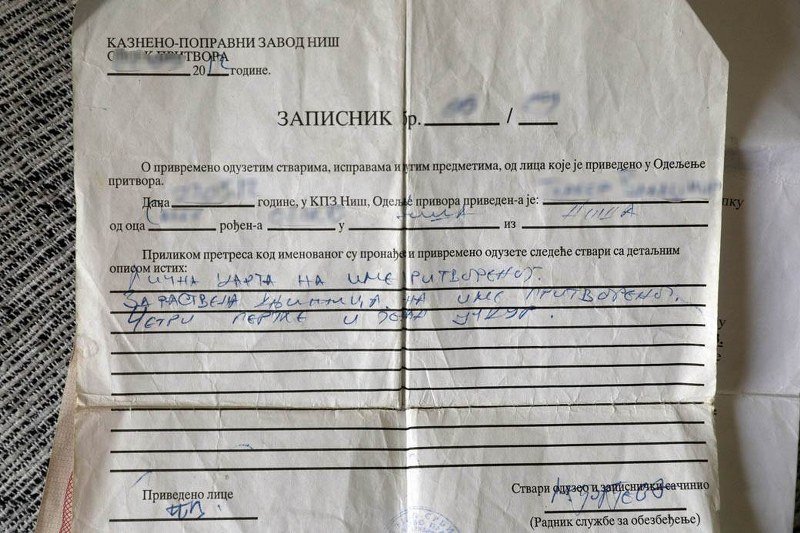 КАЗНЕНО-ПОПРАВНИ ЗАВОД НИШ
ПРИТВОРА
2012 године.
ЗАПИСНИК бр. /
О привремено одузетим стварима, исправама и угим предметима, од лица које је приведено у Одељење
притвора.
Дана године, у КПЗ Ниш, Одељење привора приведен-а је:
од оца рођен-а у Ниша из Ниша
Приликом претреса код именованог су пронађе и привремено одузете следеће ствари са детаљним
описом истих:
Лична карта на име притвореног.
Здраствена књижица на име притвореног.
Четри и један
Приведено лице
Ствари одузео и записнички сачинио
(Радник службе за обезбеђење)